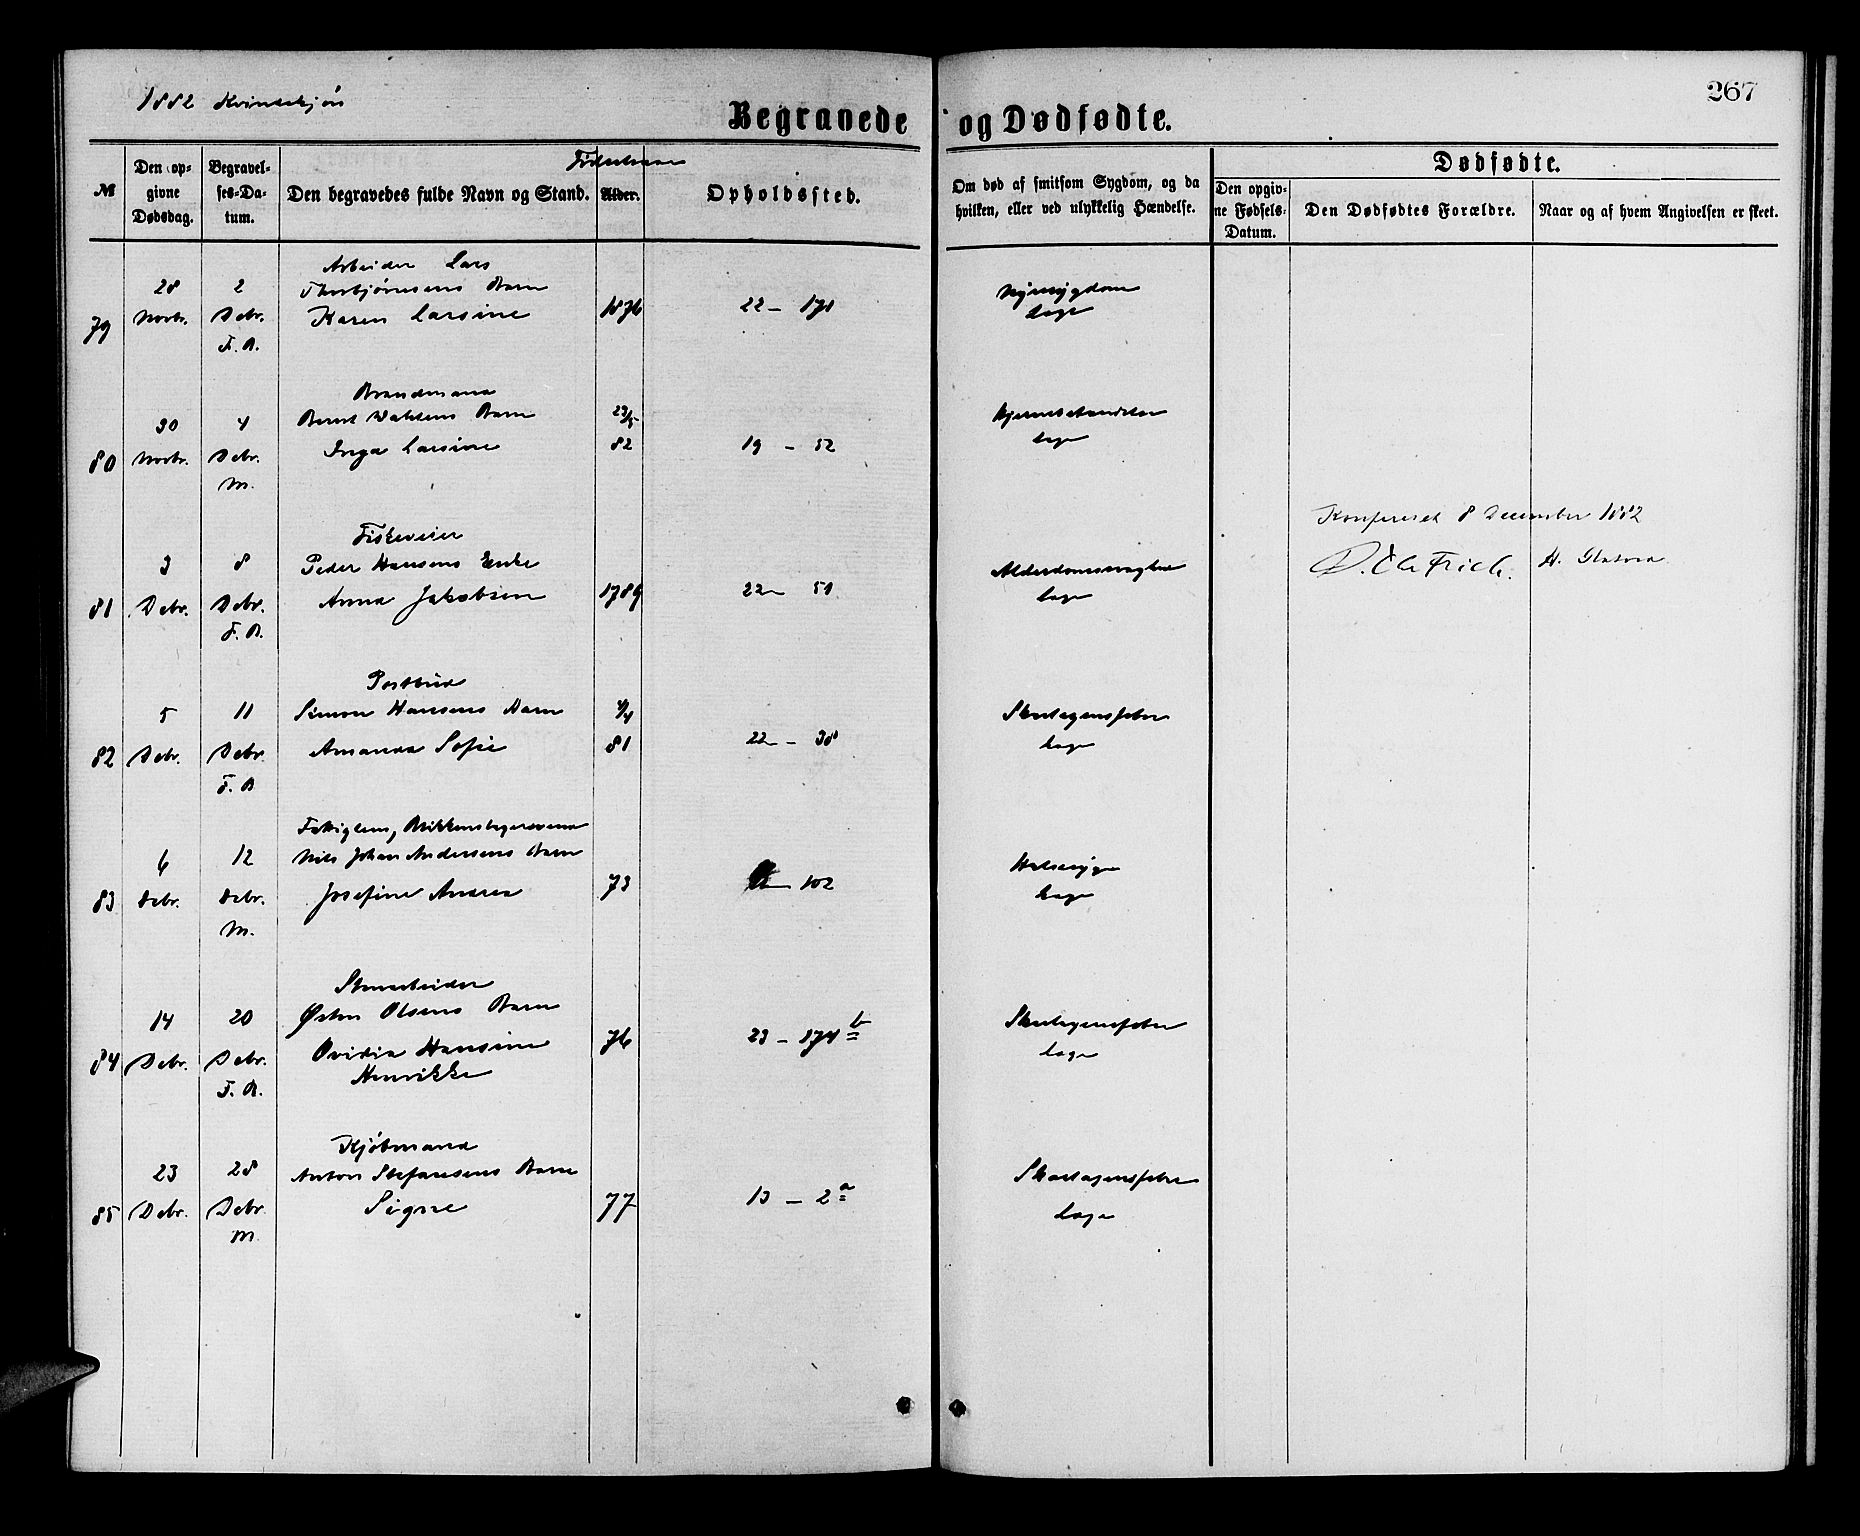 1882 Kvindekjøn
267
Begravede og Dødfødte.
№
Den opgivne Dødsdag.
Begravelses-Datum.
Den begravedes fulde Navn og Stand.
Fødselsaar
Alder.
Opholdssted.
Om død af smitsom Sygdom, og da hvilken, eller ved ulykkelig Hændelse.
Dødfødte.
Den opgivne Fødsels-Datum.
Den Dødfødtes Forældre.
Naar og af hvem Angivelsen er skeet.
Arbeider Lars
28 2 Thorbjørnsens Barn Nyresygdom
79 Novbr. Debr. Karen Larsine 1876 22 - 171 Læge
F. A.
Brandmand
30 4 Bernt Dahlens Barn 23/5 Hjernebetændelse
80 Novbr. Debr. Inga Larsine 82 19 - 52 Læge
M.
Konfereret 8 December 1882
Fiskeveier
3 8 Peder Hansens Enke Alderdomssvaghed
81 Debr. Debr. Anna Jakobsen 1789 22 - 51 Læge
F. A.
Postbud
5 11 Simon Hansens Barn Skarlagensfeber
82 Debr. Debr. Amanda Sofie 81 22 - 38 Læge
F. A
Fattiglem, Blikkenslagersvend
6 12 Nils Johan Andersens Barn Halssyge
83 Debr. Debr. Josefine Andrea 73 102 Læge
M.
Stenarbeider
14 20 Østen Olsens Barn Skarlagensfeber
84 Debr. Debr. Ovidia Hansine 76 23 - 874 b Læge
F. A. Henrikke
Kjøbmand
23 28 Anton Stefansens Barn Skarlagensfeber
85 Debr. Debr. Signe 77 13 - 2 a Læge
M